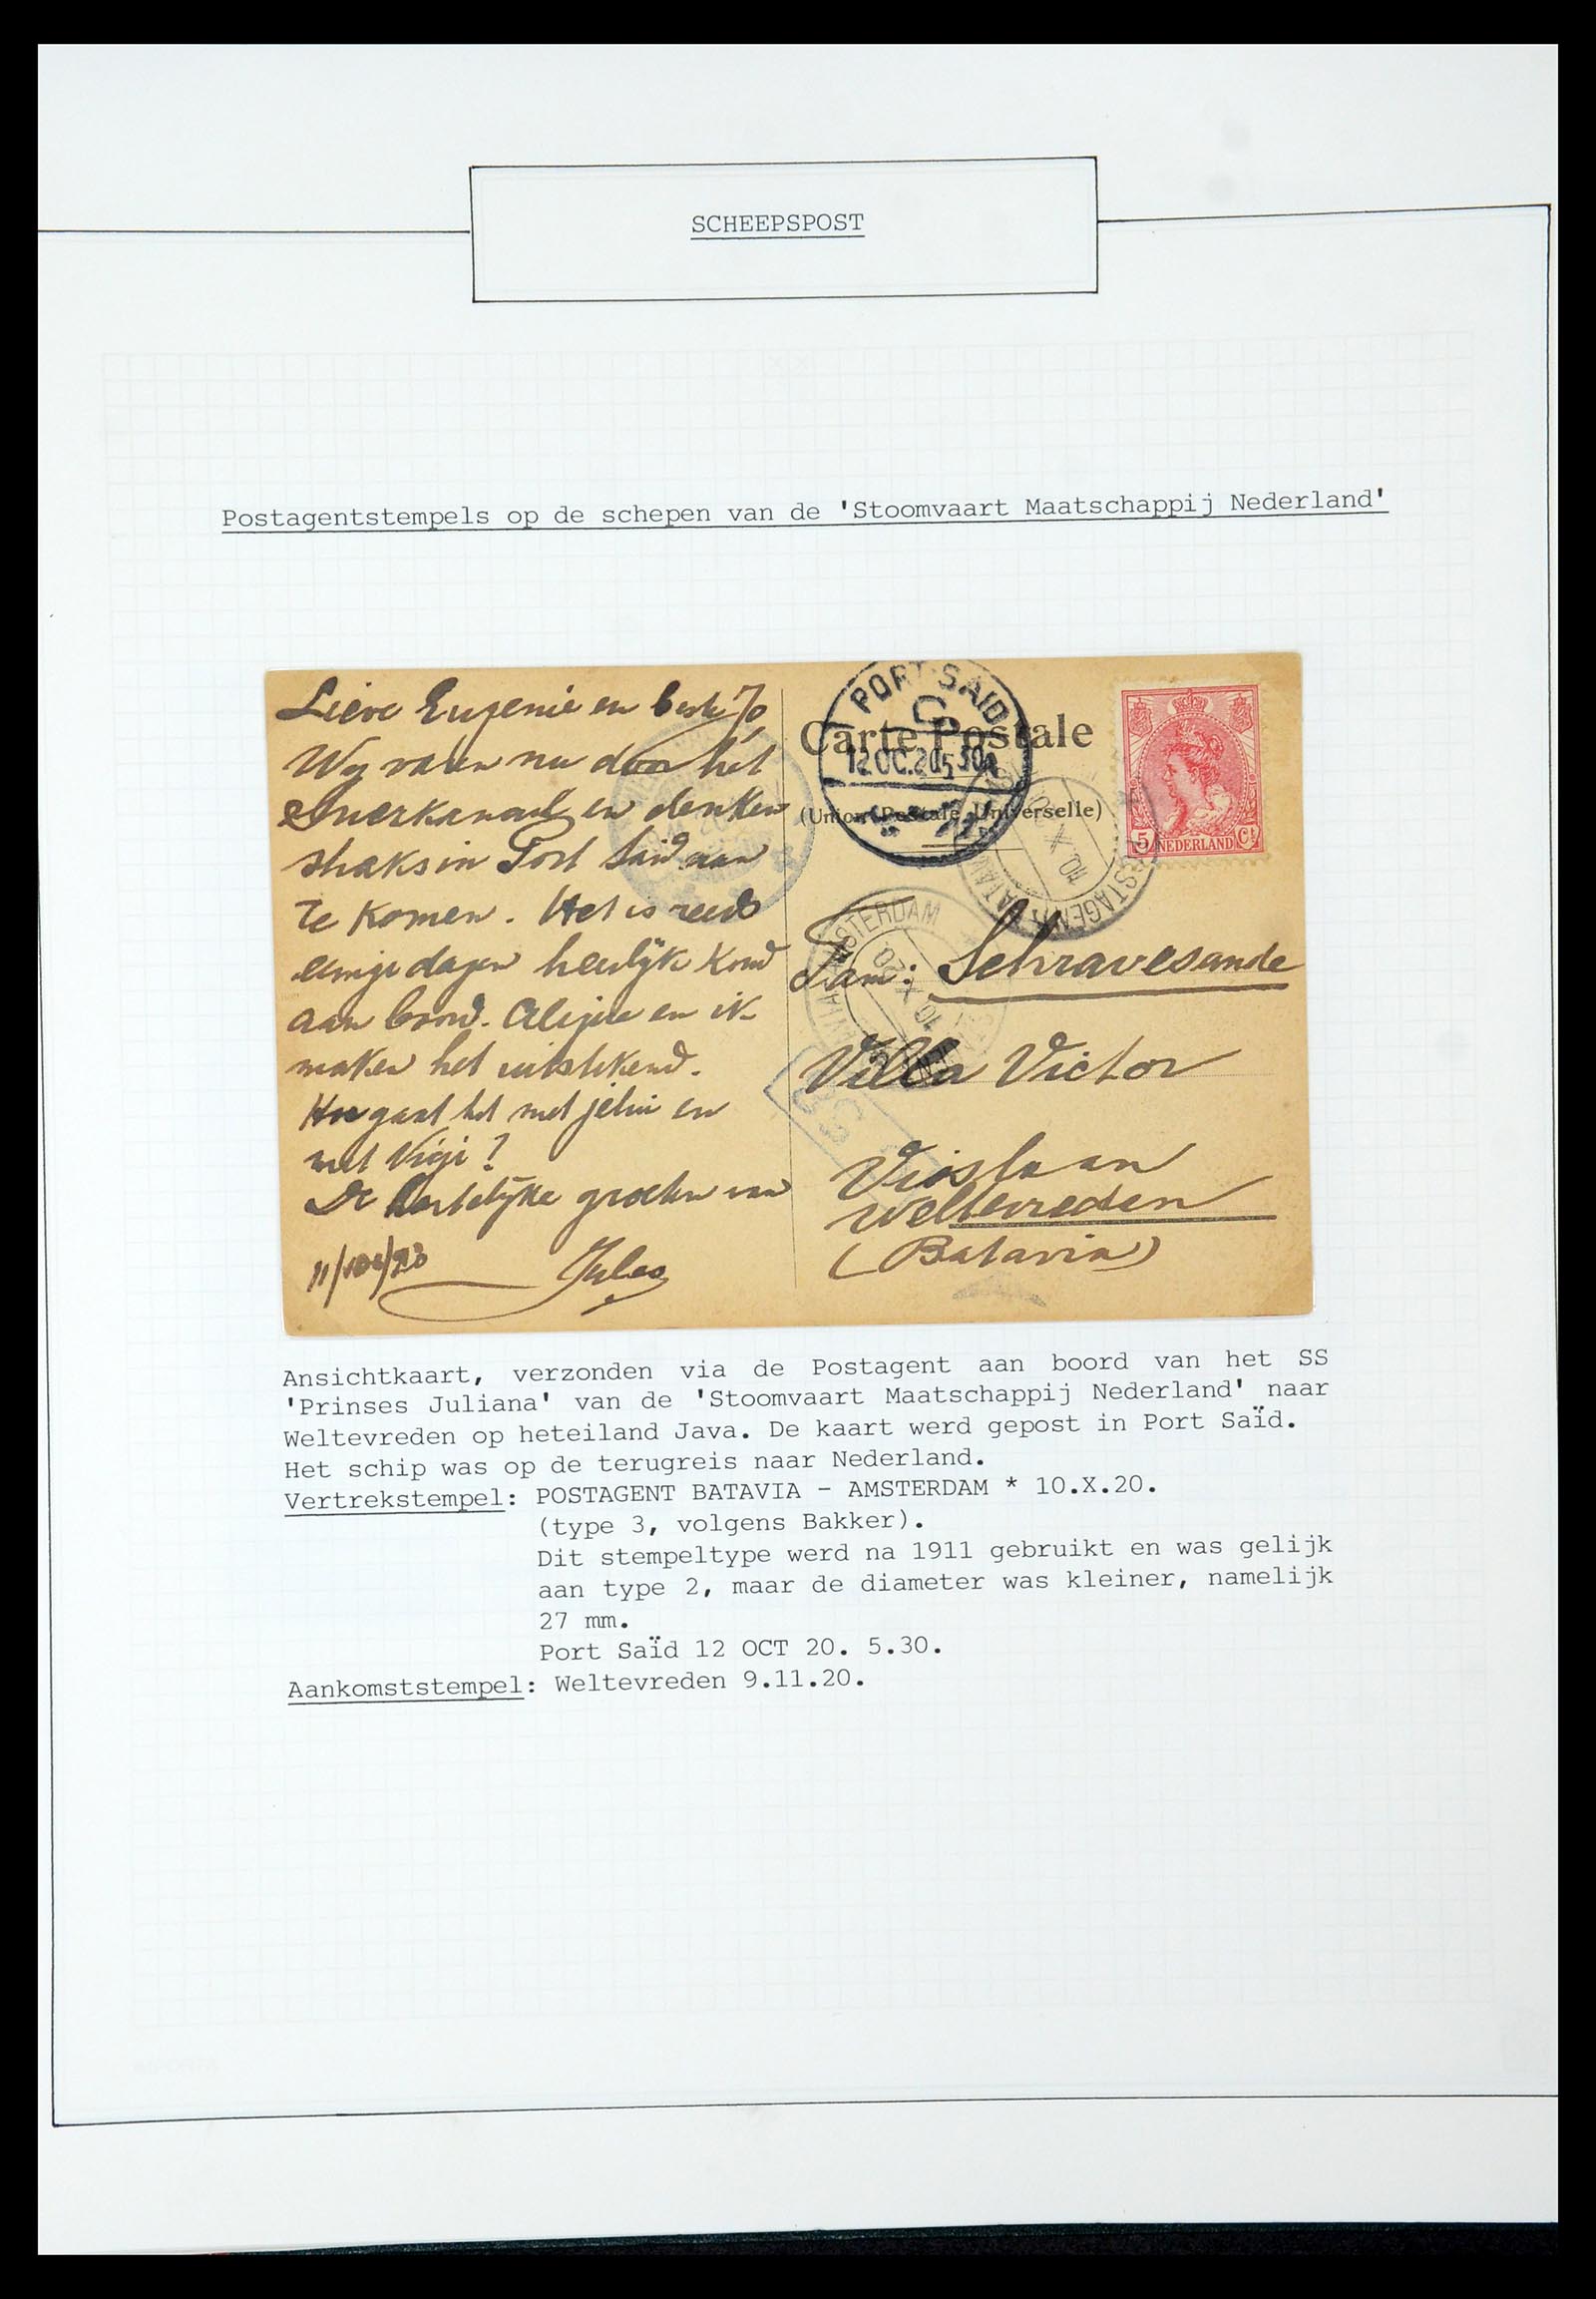 SCHEEPSPOST
Postagentstempels op de schepen van de 'Stoomvaart Maatschappij Nederland'
Lieve Eugenie en beste Jo,
Wij varen nu door het
Suezkanaal en denken
straks in Port Said aan
te komen. Het is reeds
eenige dagen heerlijk koud
aan boord. en ik
maken het uitstekend.
Hoe gaat het met jelui en
met Vigi?
De hartelijke groeten van
Jules
PORT SAID
C
12 OC. 20 5 30
Carte Postale
(Union Postale Universelle)
5 NEDERLAND Ct
10 X
AMSTERDAM
10 X 20
Fam: Schravesande
Villa Victor
Vioslaan
Weltevreden
(Batavia)
Ansichtkaart, verzonden via de Postagent aan boord van het SS
'Prinses Juliana' van de 'Stoomvaart Maatschappij Nederland' naar
Weltevreden op heteiland Java. De kaart werd gepost in Port Saïd.
Het schip was op de terugreis naar Nederland.
Vertrekstempel: POSTAGENT BATAVIA - AMSTERDAM * 10.X.20.
(type 3, volgens Bakker).
Dit stempeltype werd na 1911 gebruikt en was gelijk
aan type 2, maar de diameter was kleiner, namelijk
27 mm.
Port Saïd 12 OCT 20. 5.30.
Aankomststempel: Weltevreden 9.11.20.